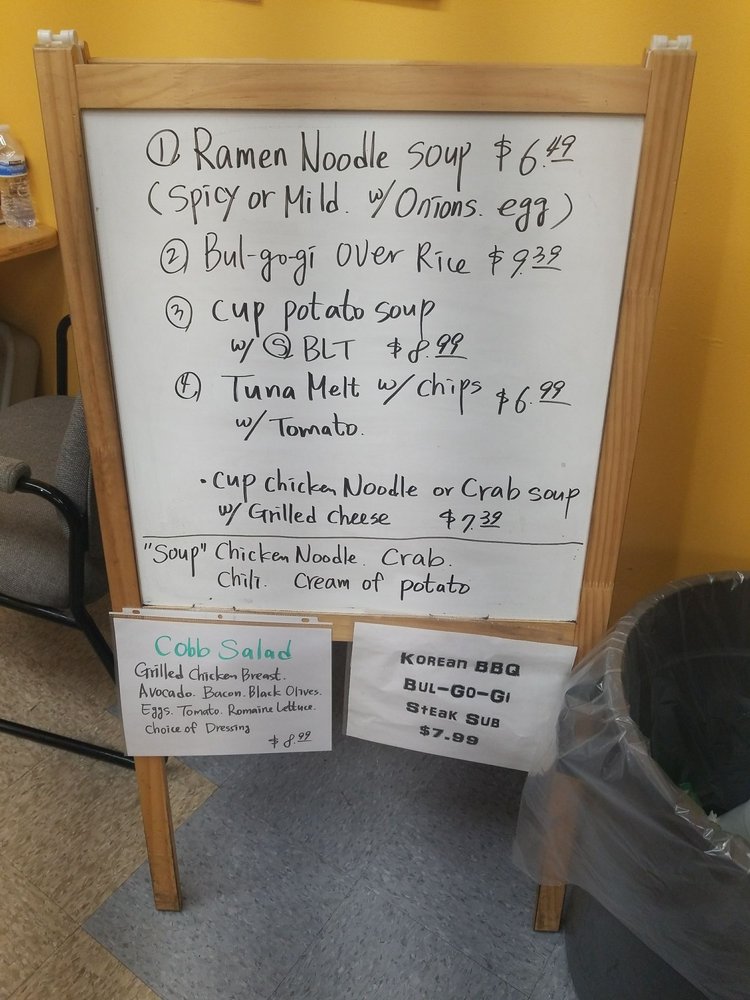 ① Ramen Noodle soup $6.49
(Spicy or Mild. w/Onions. egg)
② Bul-go-gi Over Rice $9.39
③ Cup potato soup
w/ Ⓢ BLT $8.99
④ Tuna Melt w/chips $6.99
w/Tomato.
• Cup Chicken Noodle or Crab soup
w/ Grilled Cheese $7.39
"Soup" Chicken Noodle. Crab.
Chili. Cream of potato
Cobb Salad
Grilled Chicken Breast.
Avocado. Bacon. Black Olives.
Eggs. Tomato. Romaine Lettuce.
Choice of Dressing
$8.99
Korean BBQ
Bul-Go-Gi
Steak Sub
$7.99